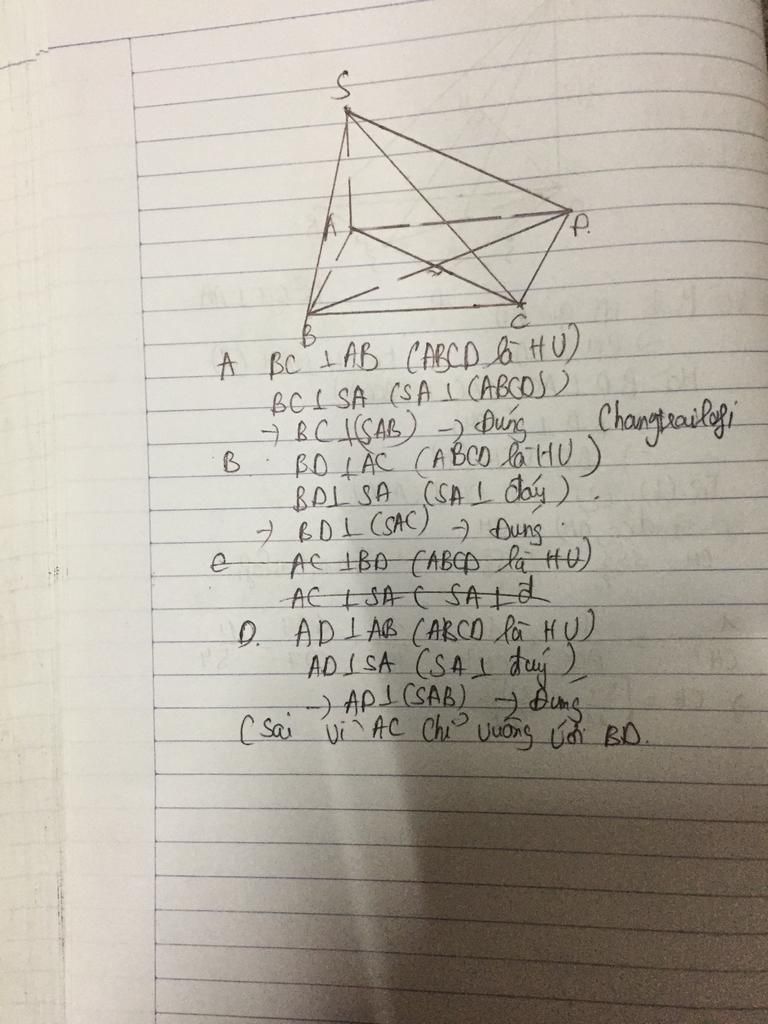 S
A
D.
B
C
A BC ⊥ AB (ABCD là HV)
BC ⊥ SA (SA ⊥ (ABCD))
→ BC ⊥ (SAB) → Đúng
Changtrailofi
B. BD ⊥ AC (ABCD là HV)
BD ⊥ SA (SA ⊥ đáy).
→ BD ⊥ (SAC) → Đúng.
C AC ⊥ BD (ABCD là HV)
AC ⊥ SA ( SA ⊥ đ
D. AD ⊥ AB (ABCD là HV)
AD ⊥ SA (SA ⊥ đáy)
→ AD ⊥ (SAB) → Đúng
C sai vì AC chỉ vuông với BD.